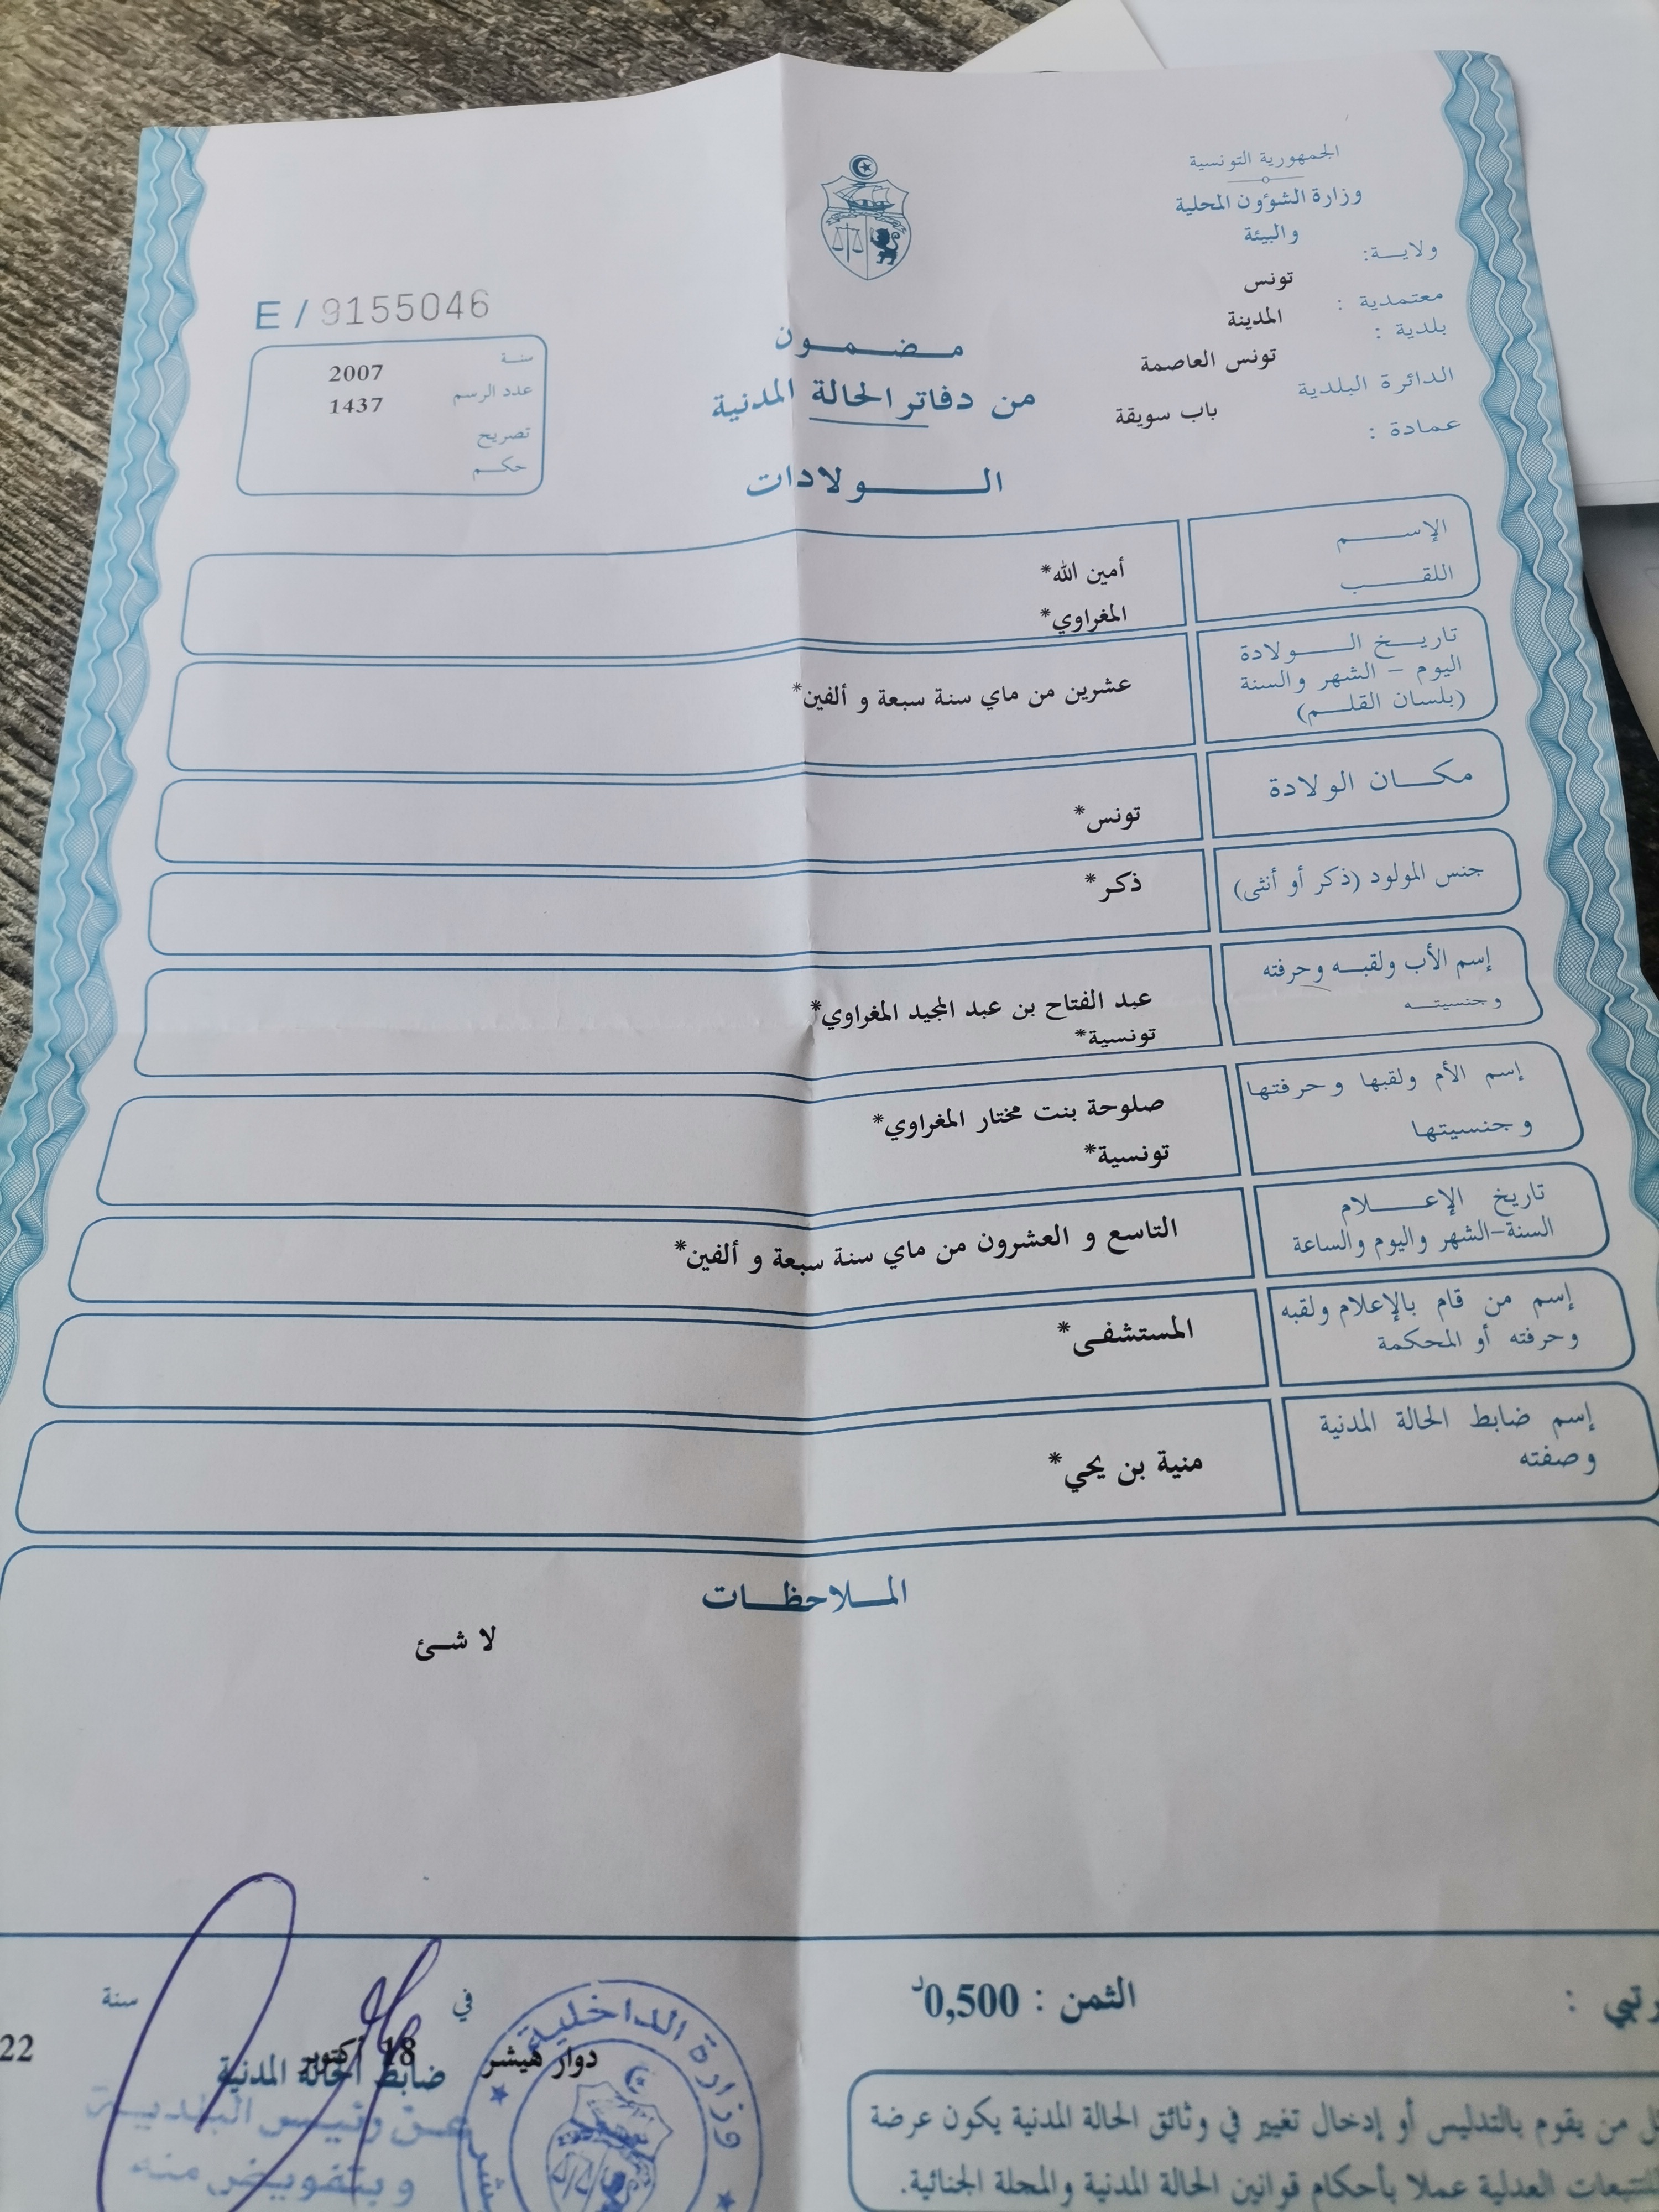 الجمهورية التونسية
وزارة الشؤون المحلية
والبيئة
ولايـــة:
تونس
معتمدية :
المدينة
بلدية :
تونس العاصمة
الدائرة البلدية
باب سويقة
عمادة :
E / 9155046
سنة
2007
عدد الرسم
1437
تصريح
حكم
مضمون
من دفاتر الحالة المدنية
الولادات
الإسم
أمين الله*
اللقب
المغراوي*
تاريخ الولادة
اليوم - الشهر والسنة
(بلسان القلم)
عشرين من ماي سنة سبعة و ألفين*
مكان الولادة
تونس*
جنس المولود (ذكر أو أنثى)
ذكر*
إسم الأب ولقبه وحرفته
وجنسيته
عبد الفتاح بن عبد المجيد المغراوي*
تونسية*
إسم الأم ولقبها وحرفتها
وجنسيتها
صلوحة بنت مختار المغراوي*
تونسية*
تاريخ الإعلام
السنة-الشهر واليوم والساعة
التاسع و العشرون من ماي سنة سبعة و ألفين*
إسم من قام بالإعلام ولقبه
وحرفته أو المحكمة
المستشفى*
إسم ضابط الحالة المدنية
وصفته
منية بن يحي*
الملاحظات
لا شئ
الثمن : 0,500د
في
سنة
دوار هيشر
18 أكتوبر
22
ضابط الحالة المدنية
عن رئيس البلدية
وبتفويض منه
وزارة الداخلية
من يقوم بالتدليس أو إدخال تغيير في وثائق الحالة المدنية يكون عرضة
للتتبعات العدلية عملا بأحكام قوانين الحالة المدنية والمجلة الجنائية.